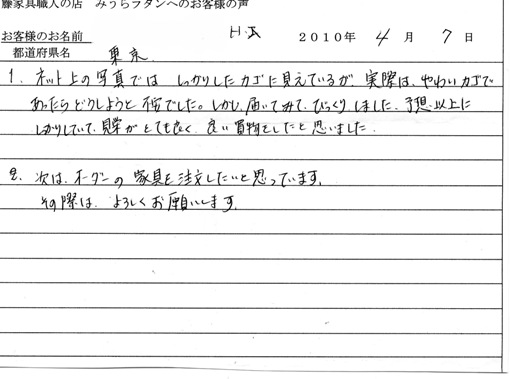 藤家具職人の店 みうらラタンへのお客様の声
お客様のお名前 H.I 2010年 4月 7日
都道府県名 東京
1. ネット上の写真では しっかりしたカゴに見えているが、実際は、やわいカゴで
あったらどうしようと不安でした。しかし、届いてみて、びっくりしました。予想以上に
しっかりしていて、見栄がとても良く、良い買物をしたと思いました。
2. 次は、オーダンの家具を注文したいと思っています。
その際は、よろしくお願いします。